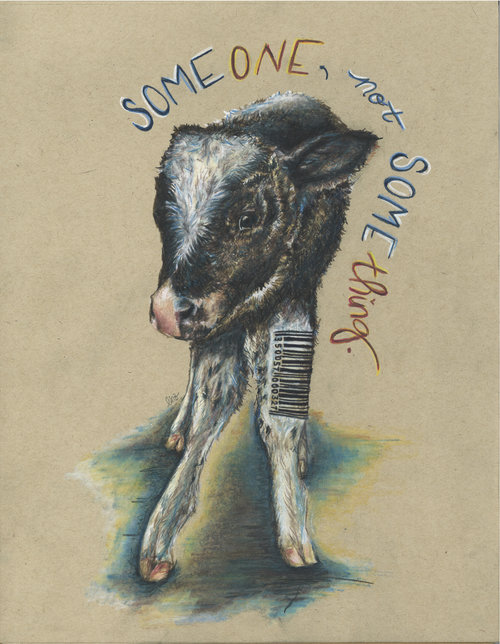 SOMEONE, not SOMEthing.
350057060327